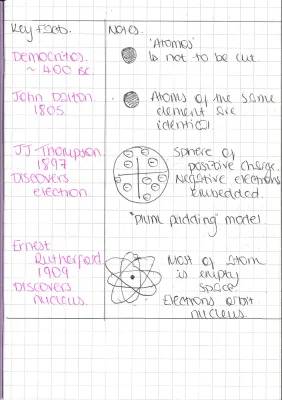 Key Facts.
Notes.
Democritos.
~ 400 BC
'Atomos'
is not to be cut
John Dalton
1805.
Atoms of the same
element are
identical
JJ Thompson
1897
Discovers
electron
Sphere of
positive charge.
Negative electrons
embedded.
"Plum pudding" model
Ernest
Rutherford
1909
Discovers
nucleus.
Most of atom
is empty
space
Electrons orbit
nucleus.